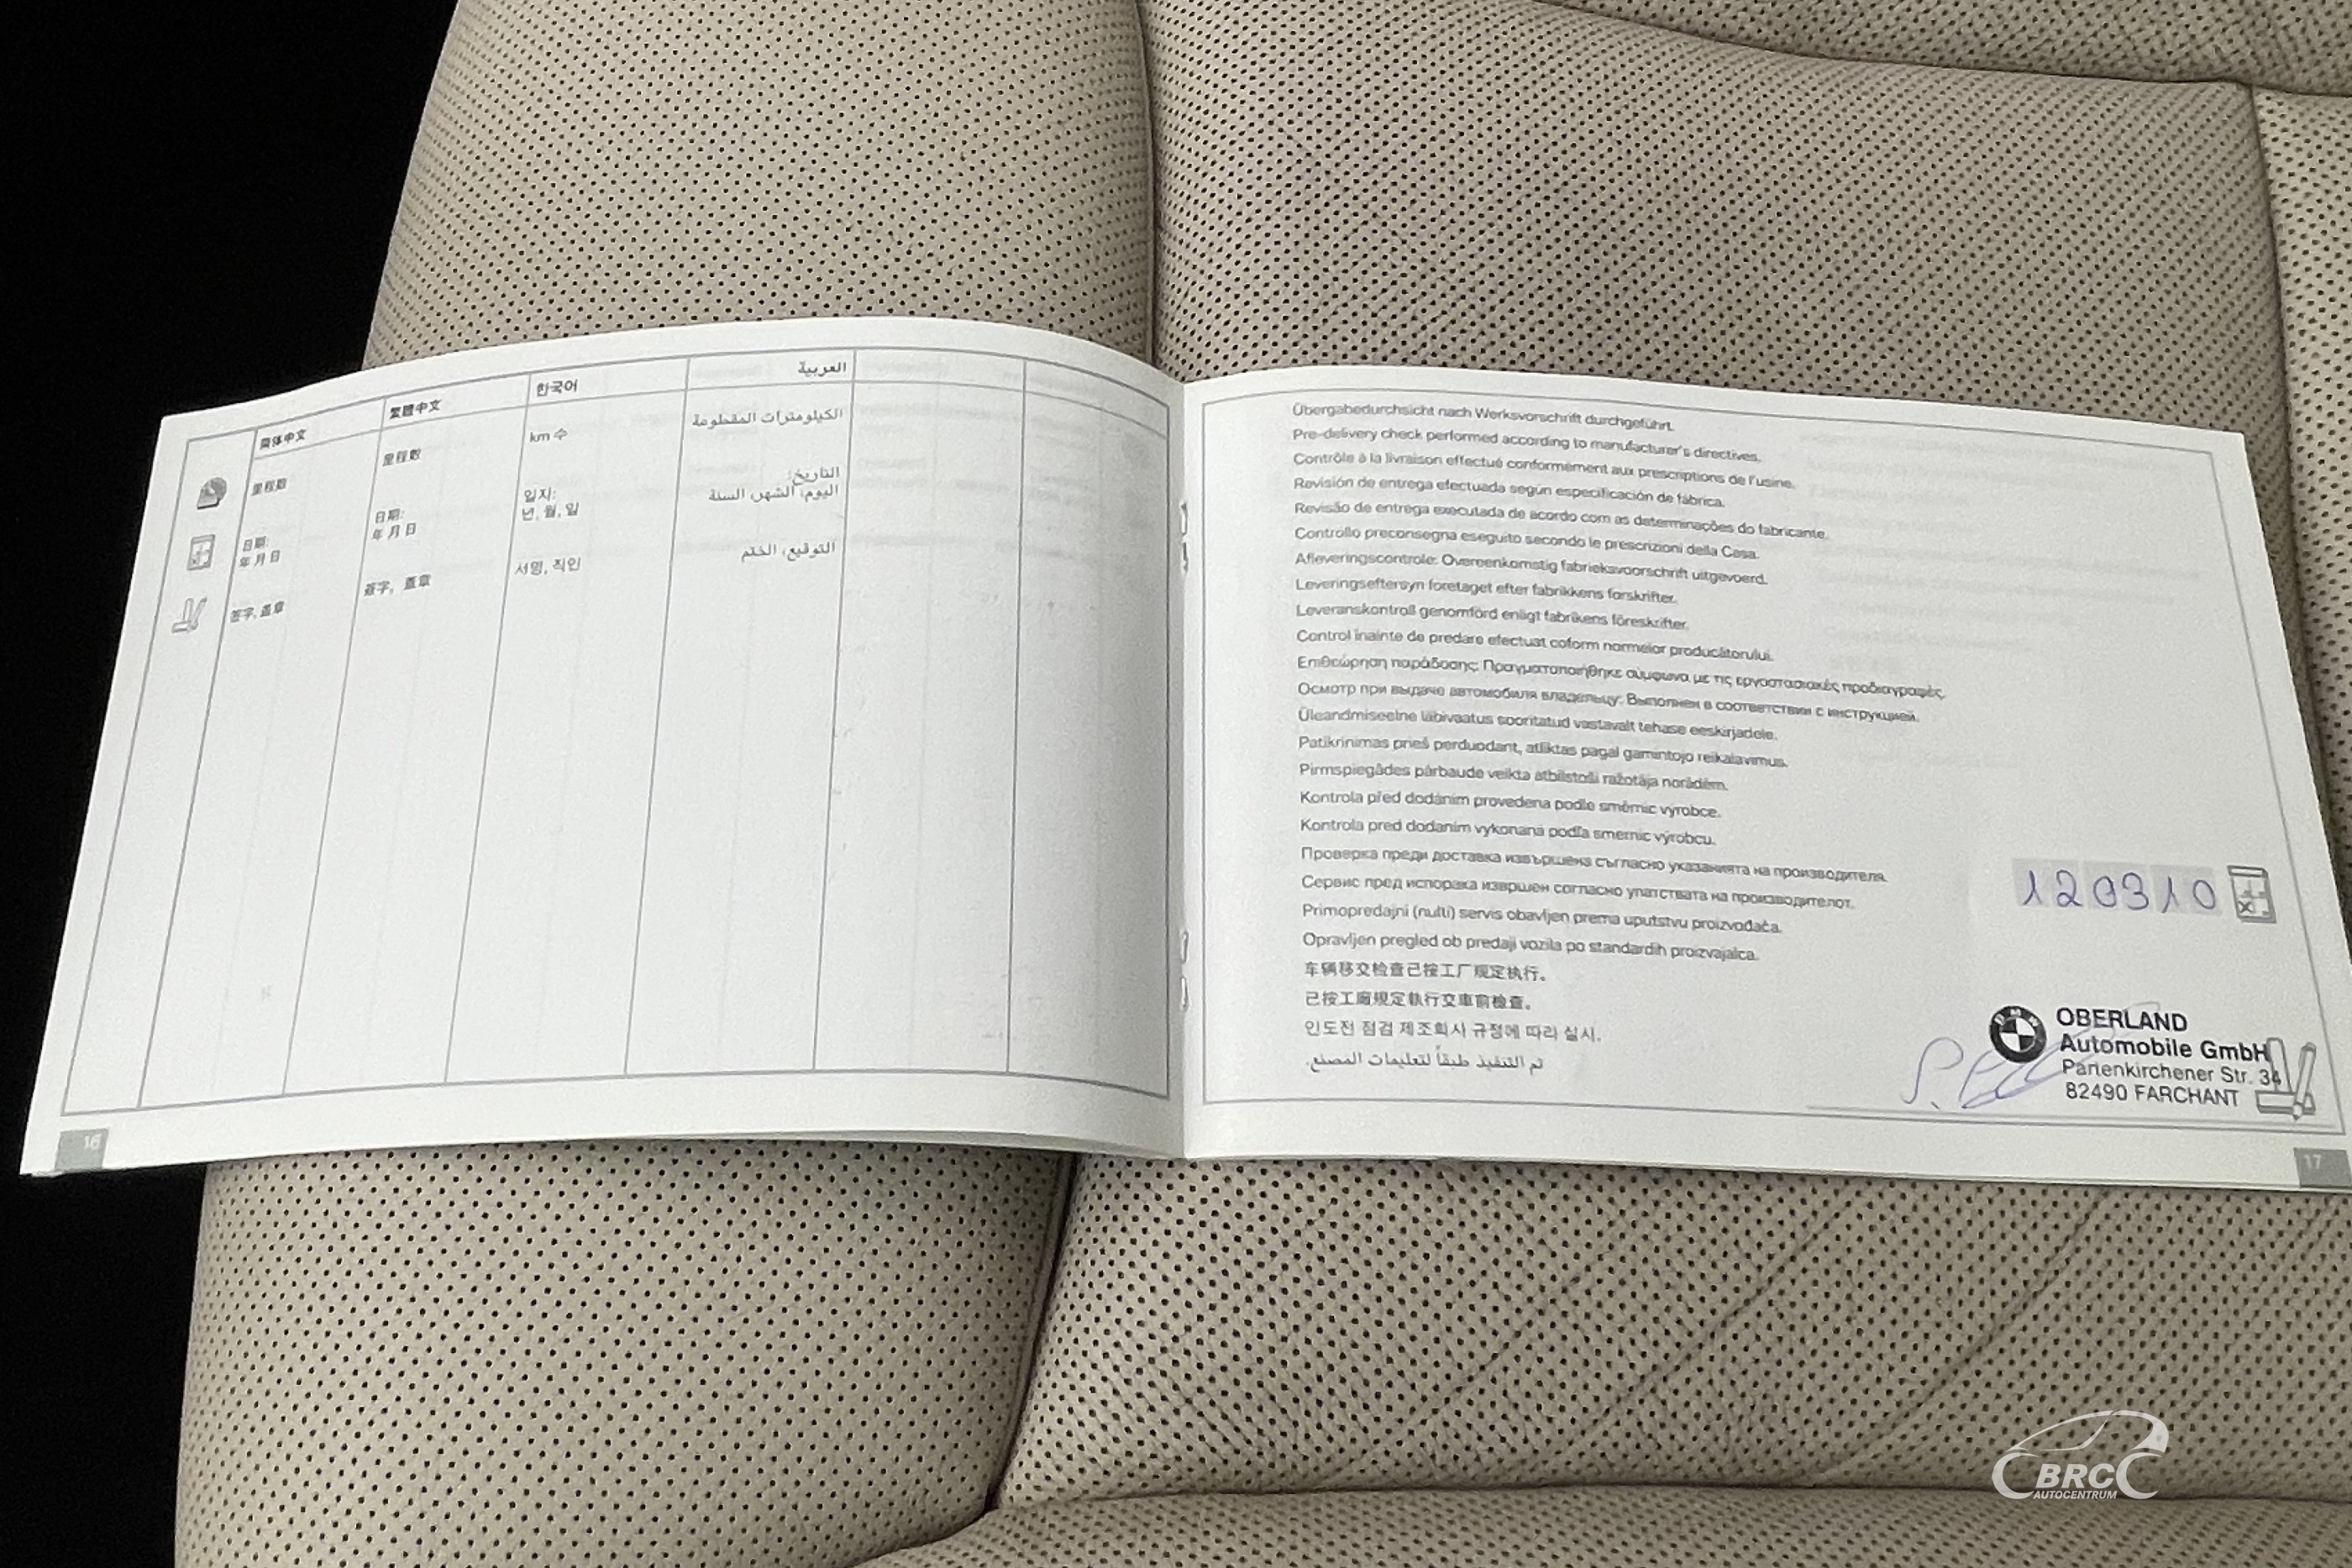 简体中文
里程数
日期:
年月日
签字, 盖章
繁體中文
里程數
日期:
年月日
簽字, 蓋章
한국어
km 수
일자:
년, 월, 일
서명, 직인
العربية
الكيلومترات المقطوعة
التاريخ:
اليوم، الشهر، السنة
التوقيع، الختم
16
Übergabedurchsicht nach Werksvorschrift durchgeführt.
Pre-delivery check performed according to manufacturer's directives.
Contrôle à la livraison effectué conformément aux prescriptions de l'usine.
Revisión de entrega efectuada según especificación de fábrica.
Revisão de entrega executada de acordo com as determinações do fabricante.
Controllo preconsegna eseguito secondo le prescrizioni della Casa.
Afleveringscontrole: Overeenkomstig fabrieksvoorschrift uitgevoerd.
Leveringseftersyn foretaget efter fabrikkens forskrifter.
Leveranskontroll genomförd enligt fabrikens föreskrifter.
Control înainte de predare efectuat coform normelor producătorului.
Επιθεώρηση παράδοσης: Πραγματοποιήθηκε σύμφωνα με τις εργοστασιακές προδιαγραφές.
Осмотр при выдаче автомобиля владельцу: Выполнен в соответствии с инструкцией.
Üleandmiseelne läbivaatus sooritatud vastavalt tehase eeskirjadele.
Patikrinimas prieš perduodant, atliktas pagal gamintojo reikalavimus.
Pirmspiegādes pārbaude veikta atbilstoši ražotāja norādēm.
Kontrola před dodáním provedena podle směrnic výrobce.
Kontrola pred dodaním vykonaná podľa smerníc výrobcu.
Проверка преди доставка извършена съгласно указанията на производителя.
Сервис пред испорака извршен согласно упатствата на производителот.
Primopredajni (nulti) servis obavljen prema uputstvu proizvođača.
Opravljen pregled ob predaji vozila po standardih proizvajalca.
车辆移交检查已按工厂规定执行。
已按工廠規定執行交車前檢查。
인도전 점검 제조회사 규정에 따라 실시.
تم التنفيذ طبقاً لتعليمات المصنع.
120310
BMW
OBERLAND
Automobile GmbH
Partenkirchener Str. 34
82490 FARCHANT
17
BRC
AUTOCENTRUM